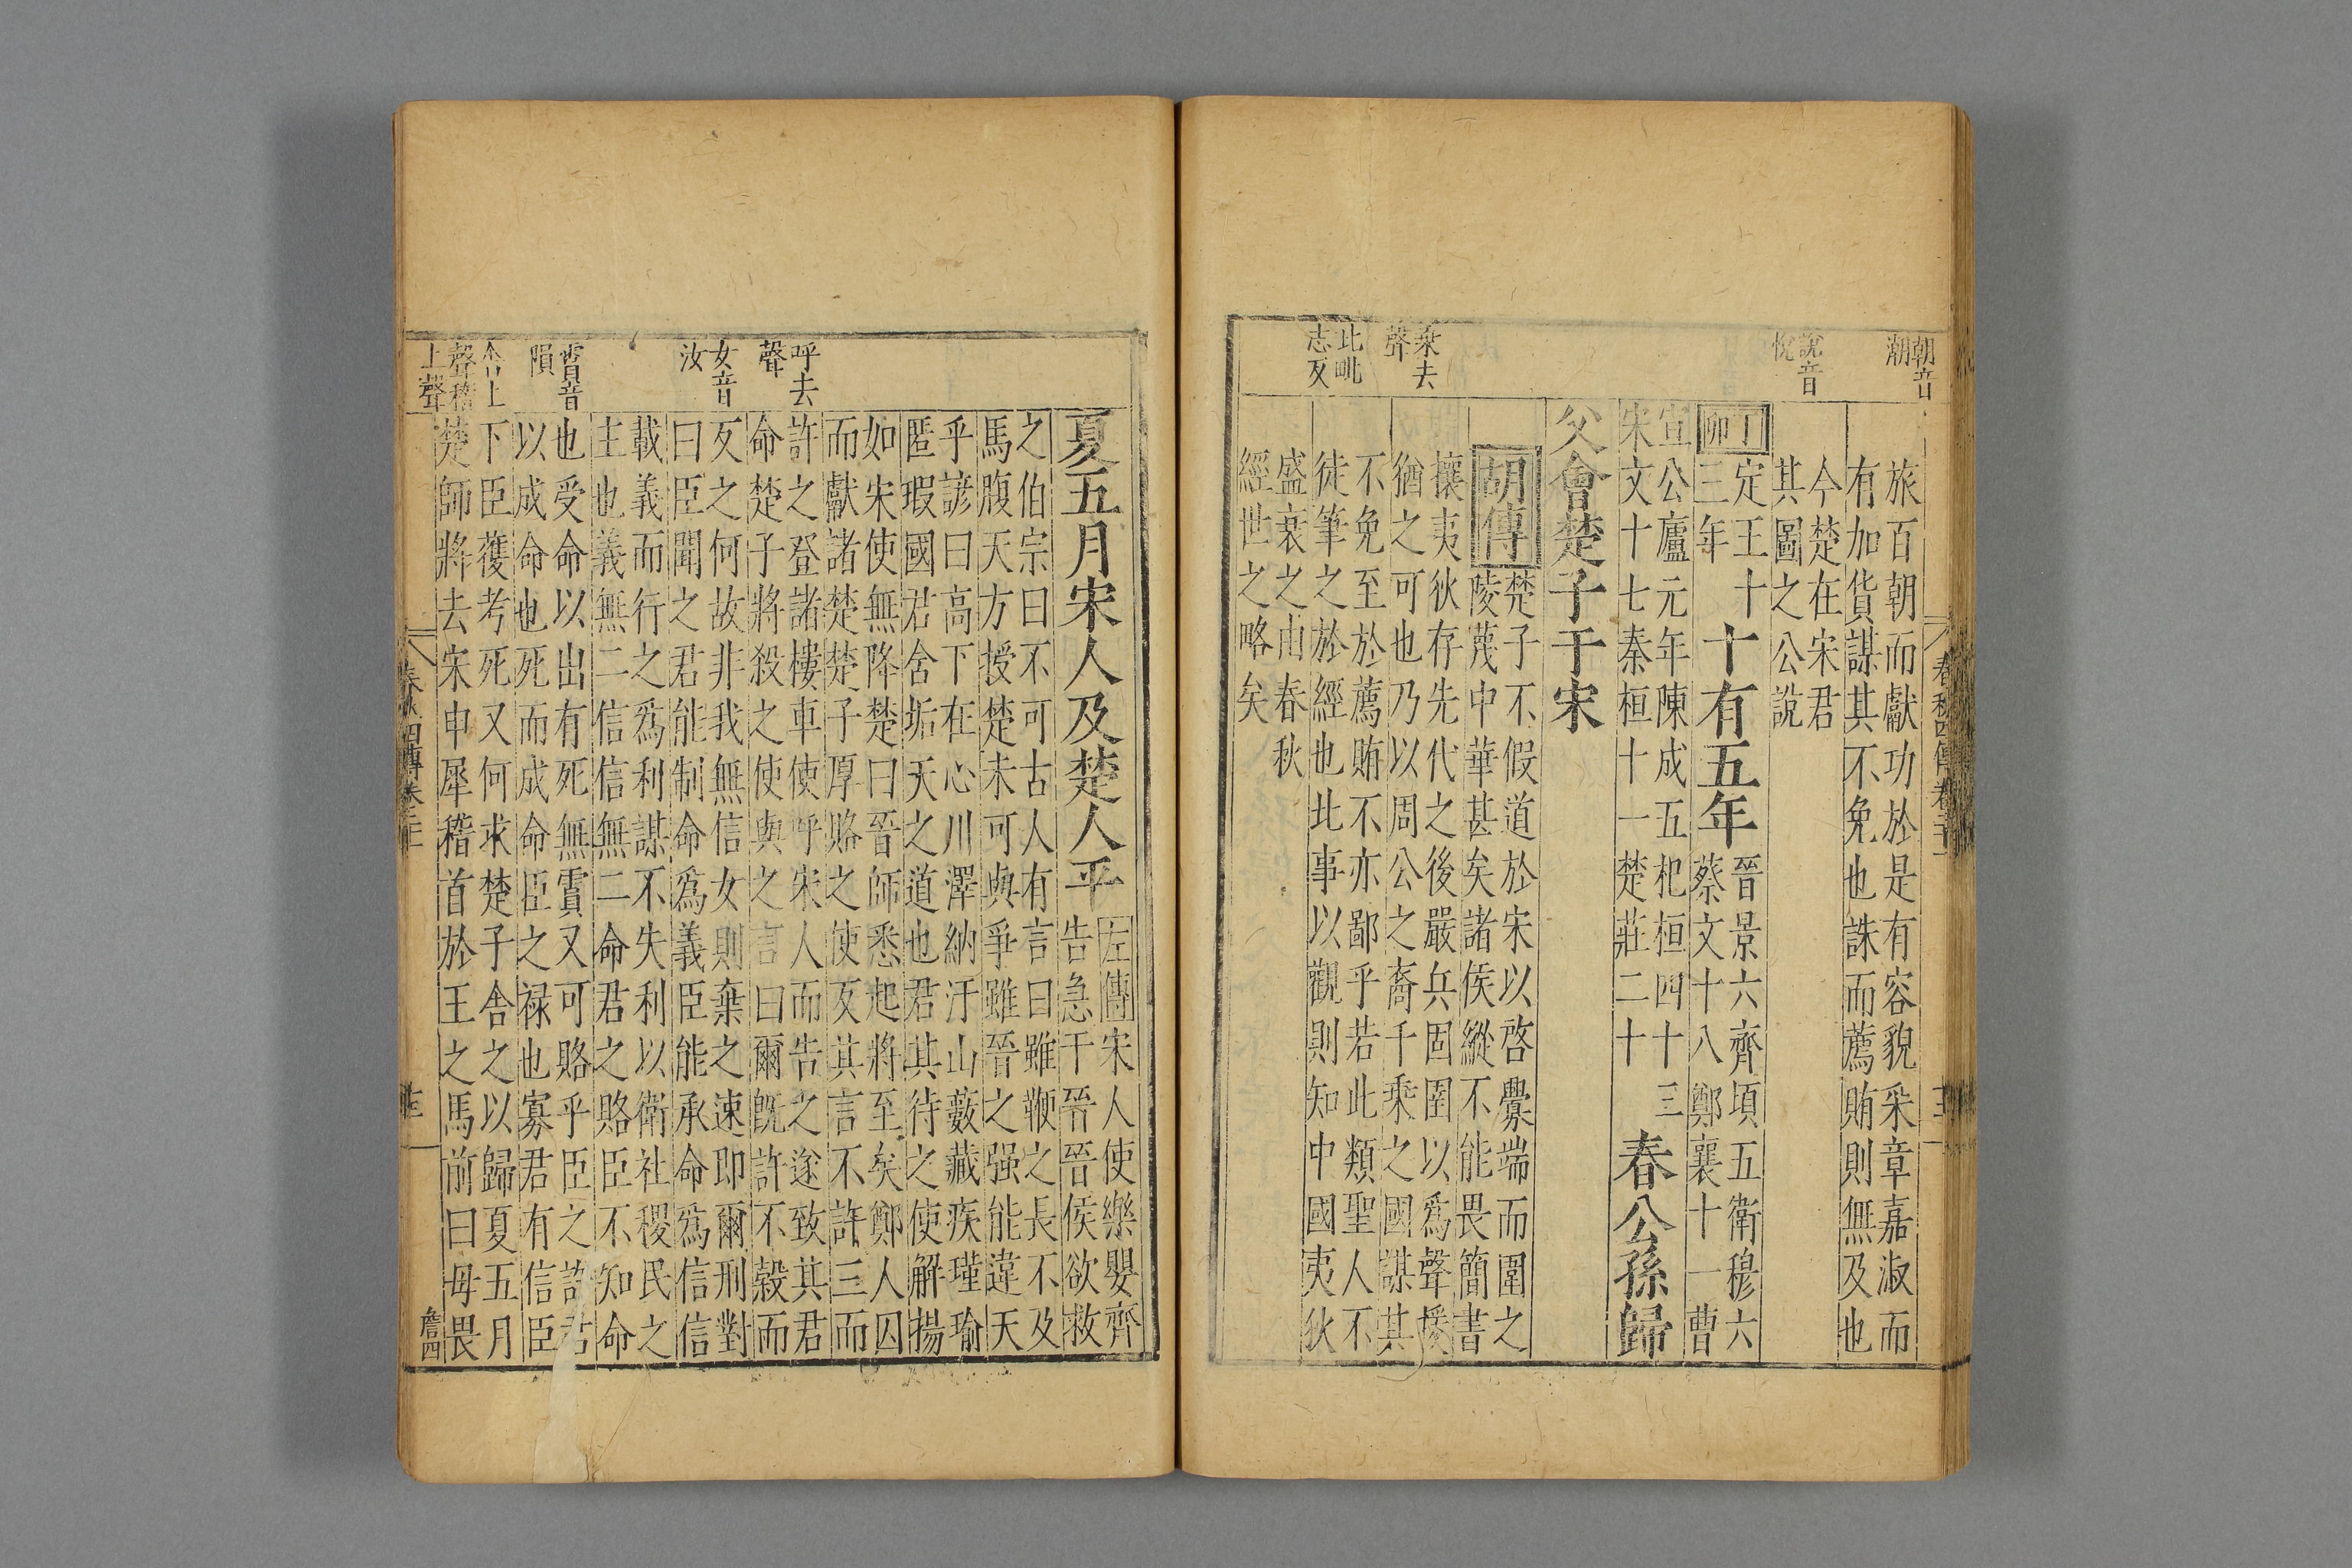 朝音
潮
說音
悅
乘去
聲
比毗
志反
旅百朝而獻功於是有容貌采章嘉淑而
有加貨謀其不免也誅而薦賄則無及也
今楚在宋君
其圖之公說
丁卯
定王十
三年
十有五年
晉景六齊頃五衛穆六
蔡文十八鄭襄十一曹
宣公廬元年陳成五杞桓四十三
宋文十七秦桓十一楚莊二十
春公孫歸
父會楚子于宋
胡傳
楚子不假道於宋以啓釁端而圍之
陵蔑中華甚矣諸侯縱不能畏簡書
攘夷狄存先代之後嚴兵固圉以爲聲援
猶之可也乃以周公之裔千乘之國謀其
不免至於薦賄不亦鄙乎若此類聖人不
徒筆之於經也此事以觀則知中國夷狄
盛衰之由春秋
經世之略矣
呼去
聲
女音
汝
霣音
隕
舍上
聲稽
上聲
夏五月宋人及楚人平
左傳宋人使樂嬰齊
告急于晉晉侯欲救
之伯宗曰不可古人有言曰雖鞭之長不及
馬腹天方授楚未可與爭雖晉之强能違天
乎諺曰高下在心川澤納汙山藪藏疾瑾瑜
匿瑕國君含垢天之道也君其待之使解揚
如宋使無降楚曰晉師悉起將至矣鄭人囚
而獻諸楚楚子厚賂之使反其言不許三而
許之登諸樓車使呼宋人而告之遂致其君
命楚子將殺之使與之言曰爾旣許不穀而
反之何故非我無信女則棄之速即爾刑對
曰臣聞之君能制命爲義臣能承命爲信信
載義而行之爲利謀不失利以衛社稷民之
主也義無二信信無二命君之賂臣不知命
也受命以出有死無霣又可賂乎臣之許君
以成命也死而成命臣之祿也寡君有信臣
下臣獲考死又何求楚子舍之以歸夏五月
楚師將去宋申犀稽首於王之馬前曰毋畏
詹四